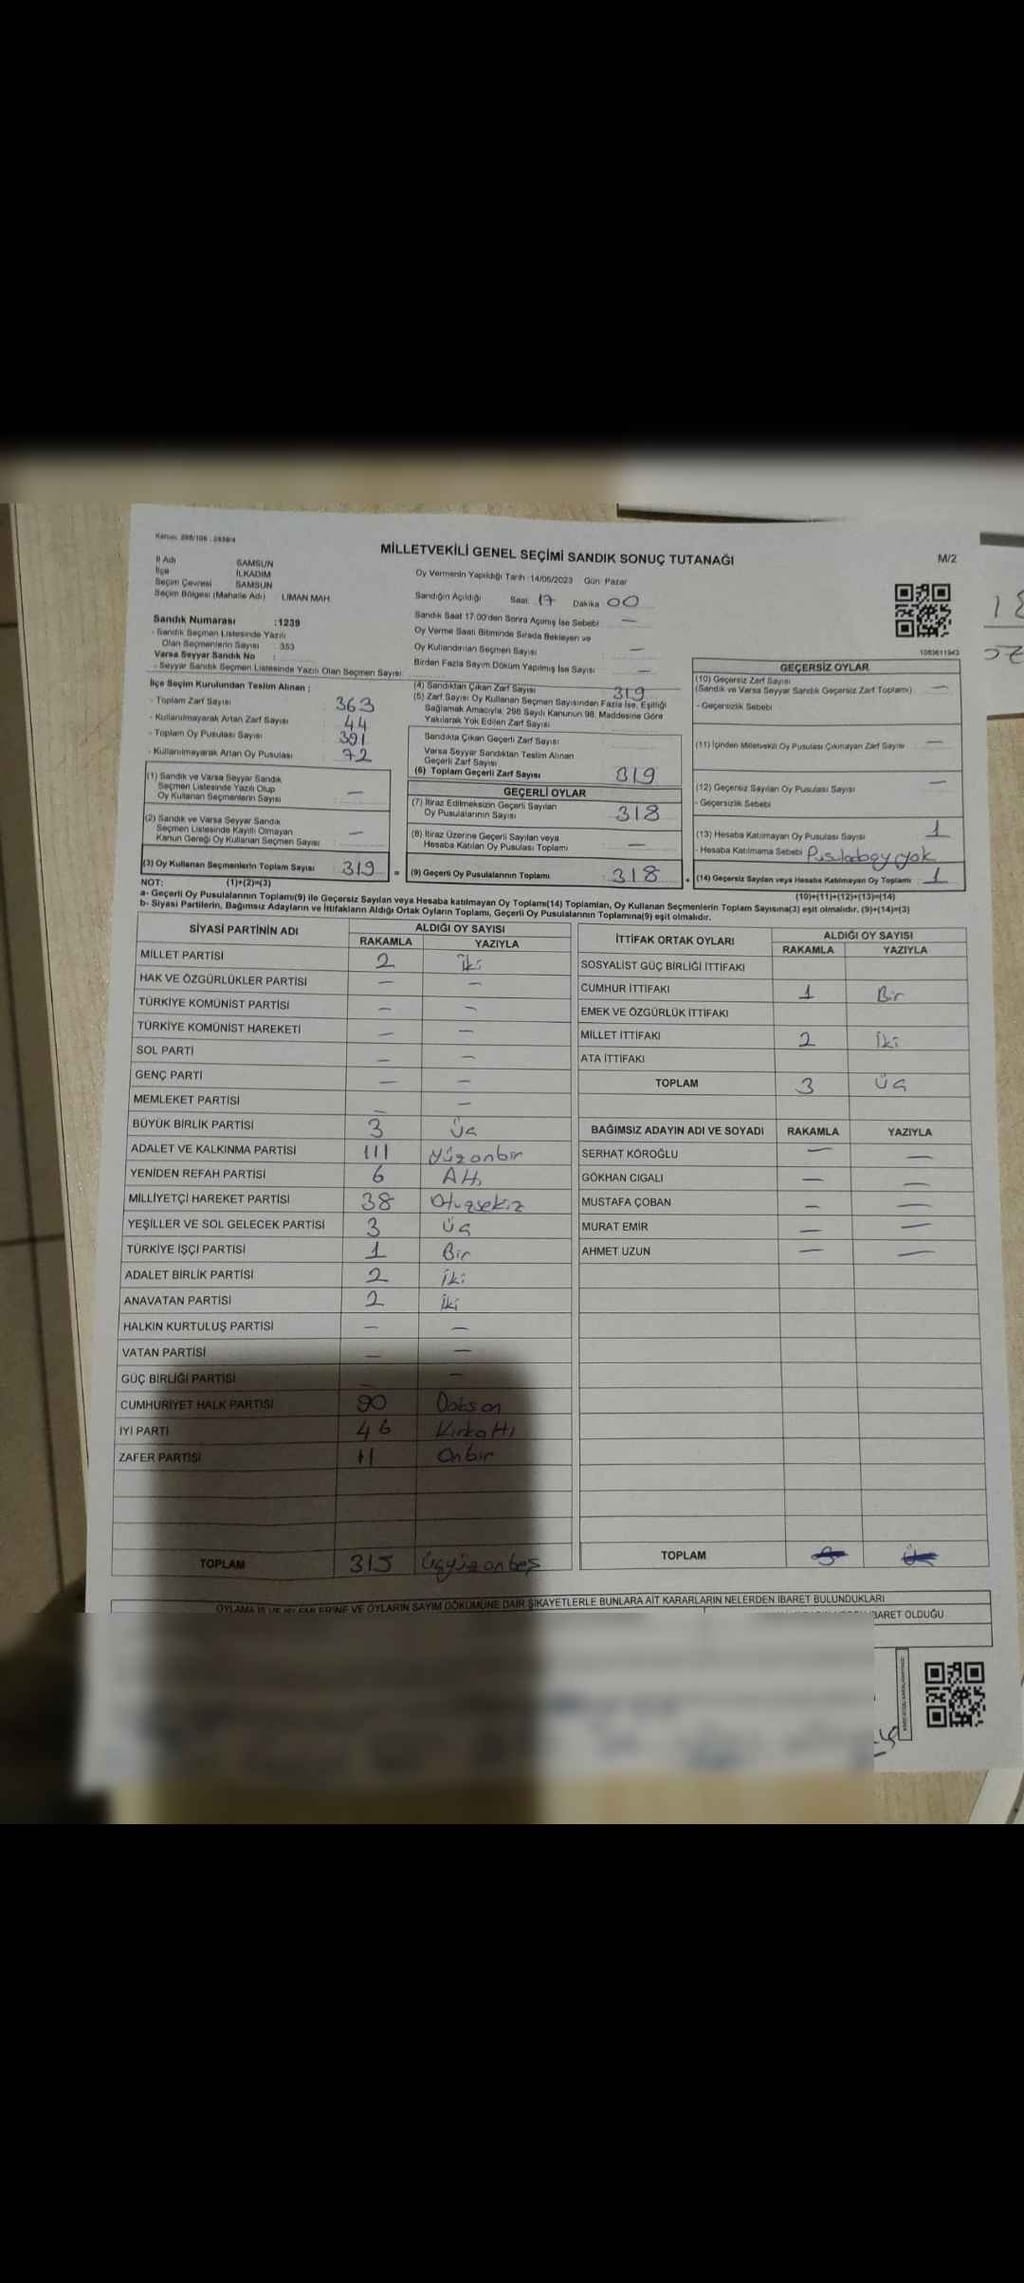 MİLLETVEKİLİ GENEL SEÇİMİ SANDIK SONUÇ TUTANAĞI
M/2
İl Adı SAMSUN
İlçe İLKADIM
Seçim Çevresi SAMSUN
Seçim Bölgesi (Mahalle Adı) LIMAN MAH.
Oy Vermenin Yapıldığı Tarih :14/05/2023 Gün: Pazar
Sandığın Açıldığı Saat: 17 Dakika 00
Sandık Saat 17.00'den Sonra Açımış İse Sebebi —
Oy Verme Saati Bitiminde Sırada Bekleyen ve
Oy Kullandırılan Seçmen Sayısı —
Birden Fazla Sayım Döküm Yapılmış İse Sayısı —
Sandık Numarası :1239
- Sandık Seçmen Listesinde Yazılı
Olan Seçmenlerin Sayısı : 353
Varsa Seyyar Sandık No :
- Seyyar Sandık Seçmen Listesinde Yazılı Olan Seçmen Sayısı:
İlçe Seçim Kurulundan Teslim Alınan ;
- Toplam Zarf Sayısı 363
- Kullanılmayarak Artan Zarf Sayısı 44
- Toplam Oy Pusulası Sayısı 391
- Kullanılmayarak Artan Oy Pusulası 72
(1) Sandık ve Varsa Seyyar Sandık
Seçmen Listesinde Yazılı Olup
Oy Kullanan Seçmenlerin Sayısı —
(2) Sandık ve Varsa Seyyar Sandık
Seçmen Listesinde Kayıtlı Olmayan
Kanun Gereği Oy Kullanan Seçmen Sayısı —
(3) Oy Kullanan Seçmenlerin Toplam Sayısı 319 =
(4) Sandıktan Çıkan Zarf Sayısı 319
(5) Zarf Sayısı Oy Kullanan Seçmen Sayısından Fazla İse, Eşitliği
Sağlamak Amacıyla, 298 Sayılı Kanunun 98. Maddesine Göre
Yakılarak Yok Edilen Zarf Sayısı
Sandıkta Çıkan Geçerli Zarf Sayısı
Varsa Seyyar Sandıktan Teslim Alınan
Geçerli Zarf Sayısı
(6) Toplam Geçerli Zarf Sayısı 319
GEÇERLİ OYLAR
(7) İtiraz Edilmeksizin Geçerli Sayılan
Oy Pusulalarının Sayısı 318
(8) İtiraz Üzerine Geçerli Sayılan veya
Hesaba Katılan Oy Pusulası Toplamı —
(9) Geçerli Oy Pusulalarının Toplamı 318 +
1083611943
GEÇERSİZ OYLAR
(10) Geçersiz Zarf Sayısı
(Sandık ve Varsa Seyyar Sandık Geçersiz Zarf Toplamı) —
- Geçersizlik Sebebi
(11) İçinden Milletvekili Oy Pusulası Çıkmayan Zarf Sayısı —
(12) Geçersiz Sayılan Oy Pusulası Sayısı —
- Geçersizlik Sebebi
(13) Hesaba Katılmayan Oy Pusulası Sayısı 1
- Hesaba Katılmama Sebebi yok
(14) Geçersiz Sayılan veya Hesaba Katılmayan Oy Toplamı 1
NOT: (1)+(2)=(3) (10)+(11)+(12)+(13)=(14)
a- Geçerli Oy Pusulalarının Toplamı(9) ile Geçersiz Sayılan veya Hesaba katılmayan Oy Toplamı(14) Toplamları, Oy Kullanan Seçmenlerin Toplam Sayısına(3) eşit olmalıdır. (9)+(14)=(3)
b- Siyasi Partilerin, Bağımsız Adayların ve İttifakların Aldığı Ortak Oyların Toplamı, Geçerli Oy Pusulalarının Toplamına(9) eşit olmalıdır.
SİYASİ PARTİNİN ADI ALDIĞI OY SAYISI
RAKAMLA YAZIYLA
MİLLET PARTİSİ 2 İki
HAK VE ÖZGÜRLÜKLER PARTİSİ — —
TÜRKİYE KOMÜNİST PARTİSİ — —
TÜRKİYE KOMÜNİST HAREKETİ — —
SOL PARTİ — —
GENÇ PARTİ — —
MEMLEKET PARTİSİ — —
BÜYÜK BİRLİK PARTİSİ 3 Üç
ADALET VE KALKINMA PARTİSİ 111 Yüzonbir
YENİDEN REFAH PARTİSİ 6 Altı
MİLLİYETÇİ HAREKET PARTİSİ 38 Otuzsekiz
YEŞİLLER VE SOL GELECEK PARTİSİ 3 Üç
TÜRKİYE İŞÇİ PARTİSİ 1 Bir
ADALET BİRLİK PARTİSİ 2 İki
ANAVATAN PARTİSİ 2 İki
HALKIN KURTULUŞ PARTİSİ — —
VATAN PARTİSİ — —
GÜÇ BİRLİĞİ PARTİSİ —
CUMHURİYET HALK PARTİSİ 90 Doksan
İYİ PARTİ 46 Kırkaltı
ZAFER PARTİSİ 11 Onbir
TOPLAM 315 Üçyüzonbeş
İTTİFAK ORTAK OYLARI ALDIĞI OY SAYISI
RAKAMLA YAZIYLA
SOSYALİST GÜÇ BİRLİĞİ İTTİFAKI
CUMHUR İTTİFAKI 1 Bir
EMEK VE ÖZGÜRLÜK İTTİFAKI
MİLLET İTTİFAKI 2 İki
ATA İTTİFAKI
TOPLAM 3 Üç
BAĞIMSIZ ADAYIN ADI VE SOYADI RAKAMLA YAZIYLA
SERHAT KÖROĞLU — —
GÖKHAN CIGALI — —
MUSTAFA ÇOBAN — —
MURAT EMİR — —
AHMET UZUN — —
TOPLAM
VE OYLARIN SAYIM DÖKÜMÜNE DAİR ŞİKAYETLERLE BUNLARA AİT KARARLARIN NELERDEN İBARET BULUNDUKLARI
İBARET OLDUĞU